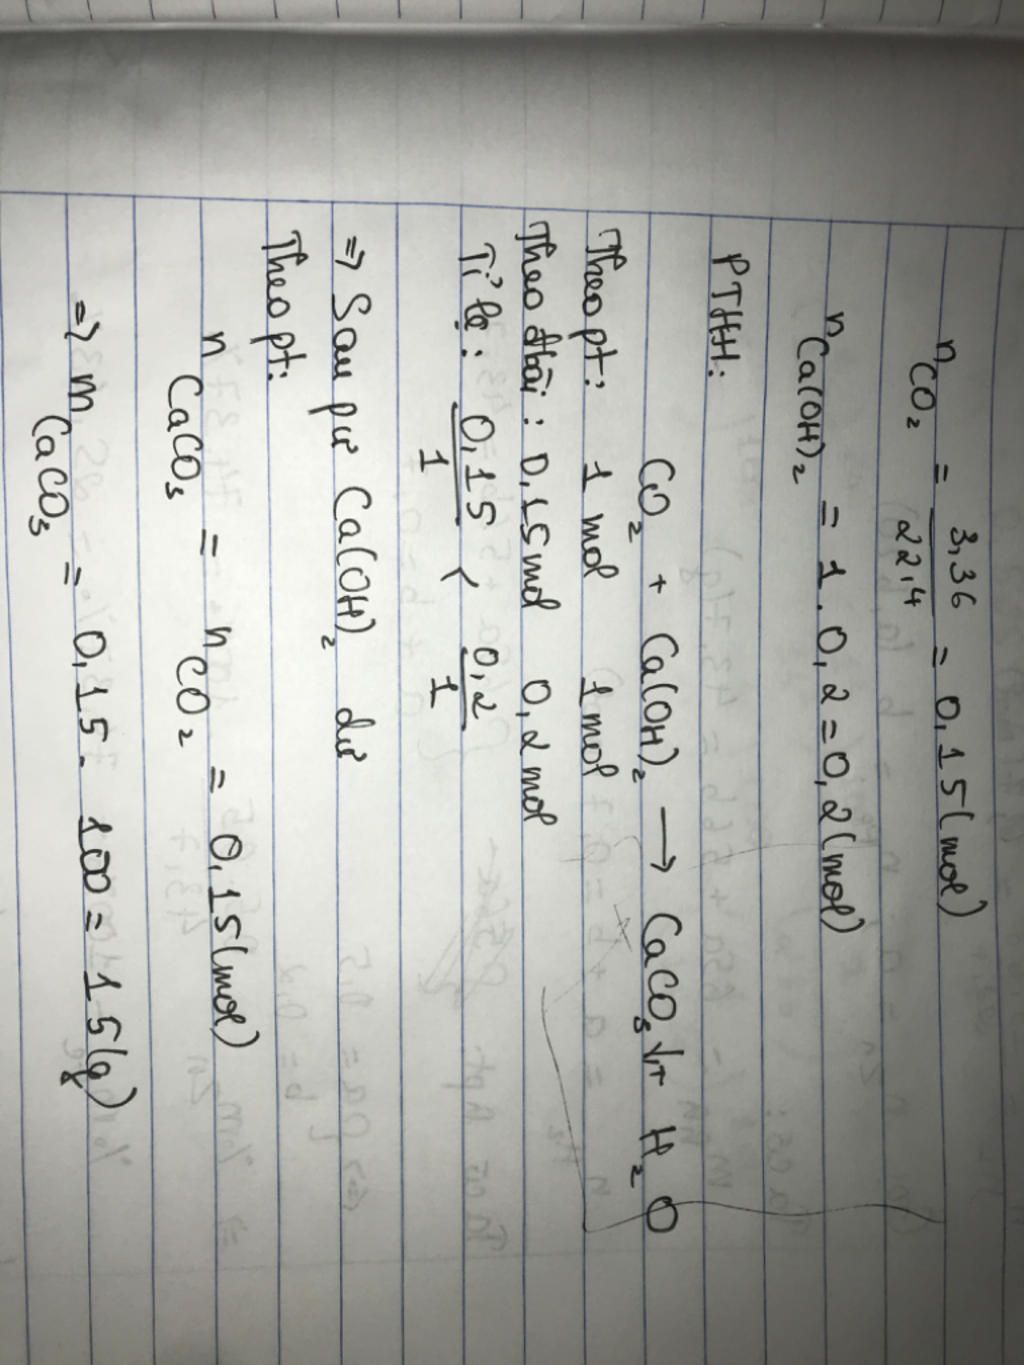 nCO₂ = 3,36/22,4 = 0,15(mol)
nCa(OH)₂ = 1.0,2=0,2(mol)
PTHH:
CO₂ + Ca(OH)₂ → CaCO₃↓+ H₂O
Theo pt: 1 mol 1 mol
Theo đbài: 0,15mol 0,2mol
Tỉ lệ: 0,15/1 < 0,2/1
=> Sau pư Ca(OH)₂ dư
Theo pt:
nCaCO₃ = nCO₂ = 0,15(mol)
=> mCaCO₃ = 0,15. 100=15(g)